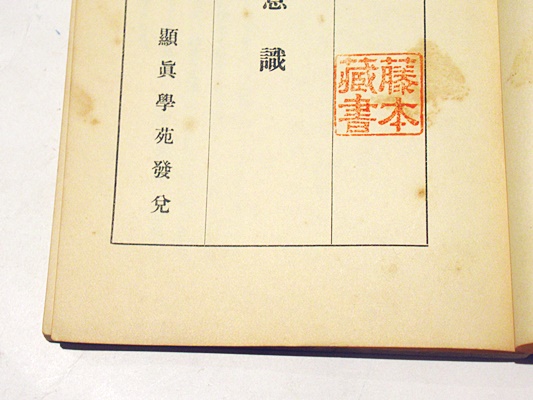 藤本
藏書
識
顯眞學苑發兌